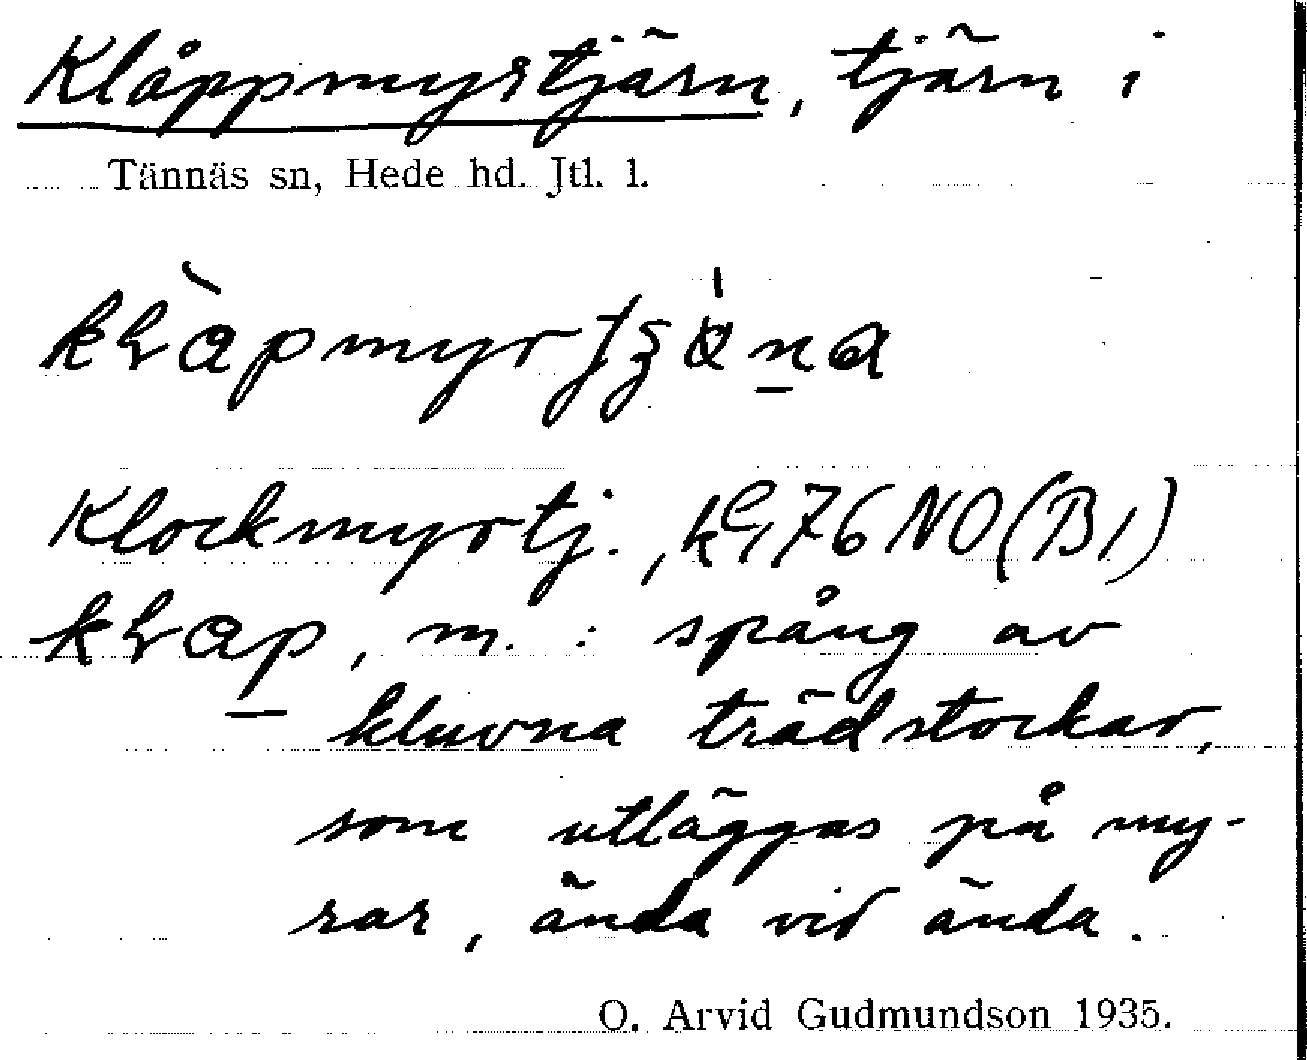 Klåppmyrtjärn, tjärn i
Tännäs sn, Hede hd. Jtl. l.
Klockmyrtj., k9, 76 NO (B1)
m. : spång av
kluvna trädstockar,
som utläggas på my-
rar, ända vid ända.
O. Arvid Gudmundson 1935.